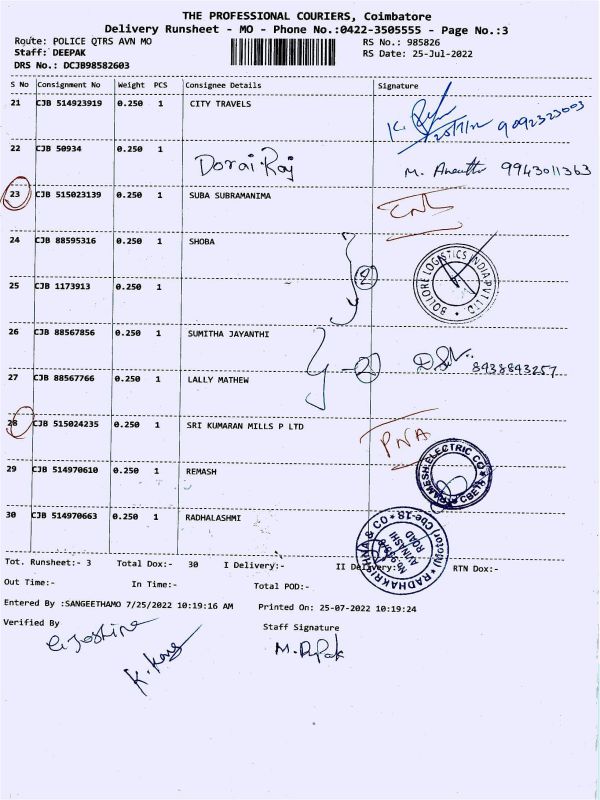 THE PROFESSIONAL COURIERS, Coimbatore
Delivery Runsheet - MO - Phone No.:0422-3505555 - Page No.:3
Route: POLICE QTRS AVN MO
RS No.: 985826
Staff: DEEPAK
RS Date: 25-Jul-2022
DRS No.: DCJB98582603
S No Consignment No Weight PCS Consignee Details Signature
21 CJB 514923919 0.250 1 CITY TRAVELS
25/7/22 9092323003
22 CJB 50934 0.250 1 Dorai Raj M. 9943011363
23 CJB 515023139 0.250 1 SUBA SUBRAMANIMA
24 CJB 88595316 0.250 1 SHOBA
2
BOLLORE LOGISTICS INDIA PVT LTD
25 CJB 1173913 0.250 1
26 CJB 88567856 0.250 1 SUMITHA JAYANTHI
2 8438843257
27 CJB 88567766 0.250 1 LALLY MATHEW
28 CJB 515024235 0.250 1 SRI KUMARAN MILLS P LTD
PNA
29 CJB 514970610 0.250 1 REMASH
RAMESH ELECTRIC CO
30 CJB 514970663 0.250 1 RADHALASHMI
RADHAKRISHNA & CO
AVINASHI
ROAD
Cbe-18
Tot. Runsheet:- 3 Total Dox:- 30 I Delivery:- II Delivery:- RTN Dox:-
Out Time:- In Time:- Total POD:-
Entered By :SANGEETHAMO 7/25/2022 10:19:16 AM Printed On: 25-07-2022 10:19:24
Verified By
Staff Signature